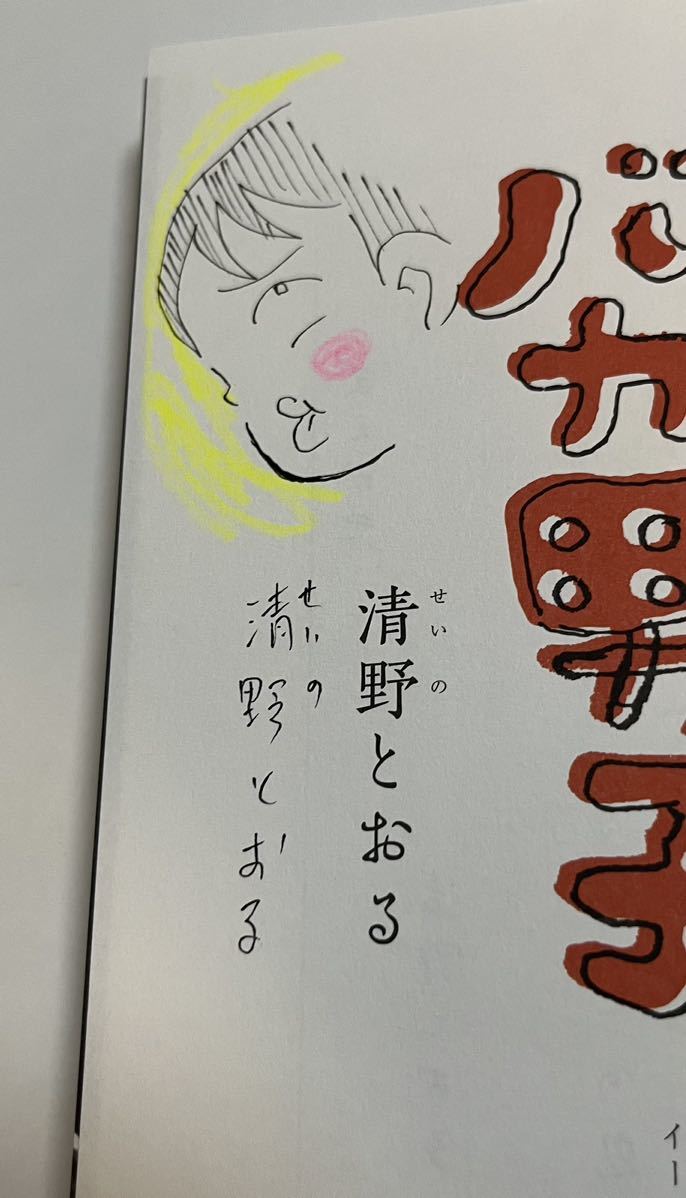 バカ男子
イー
せいの
清野とおる
せいの
清野とおる